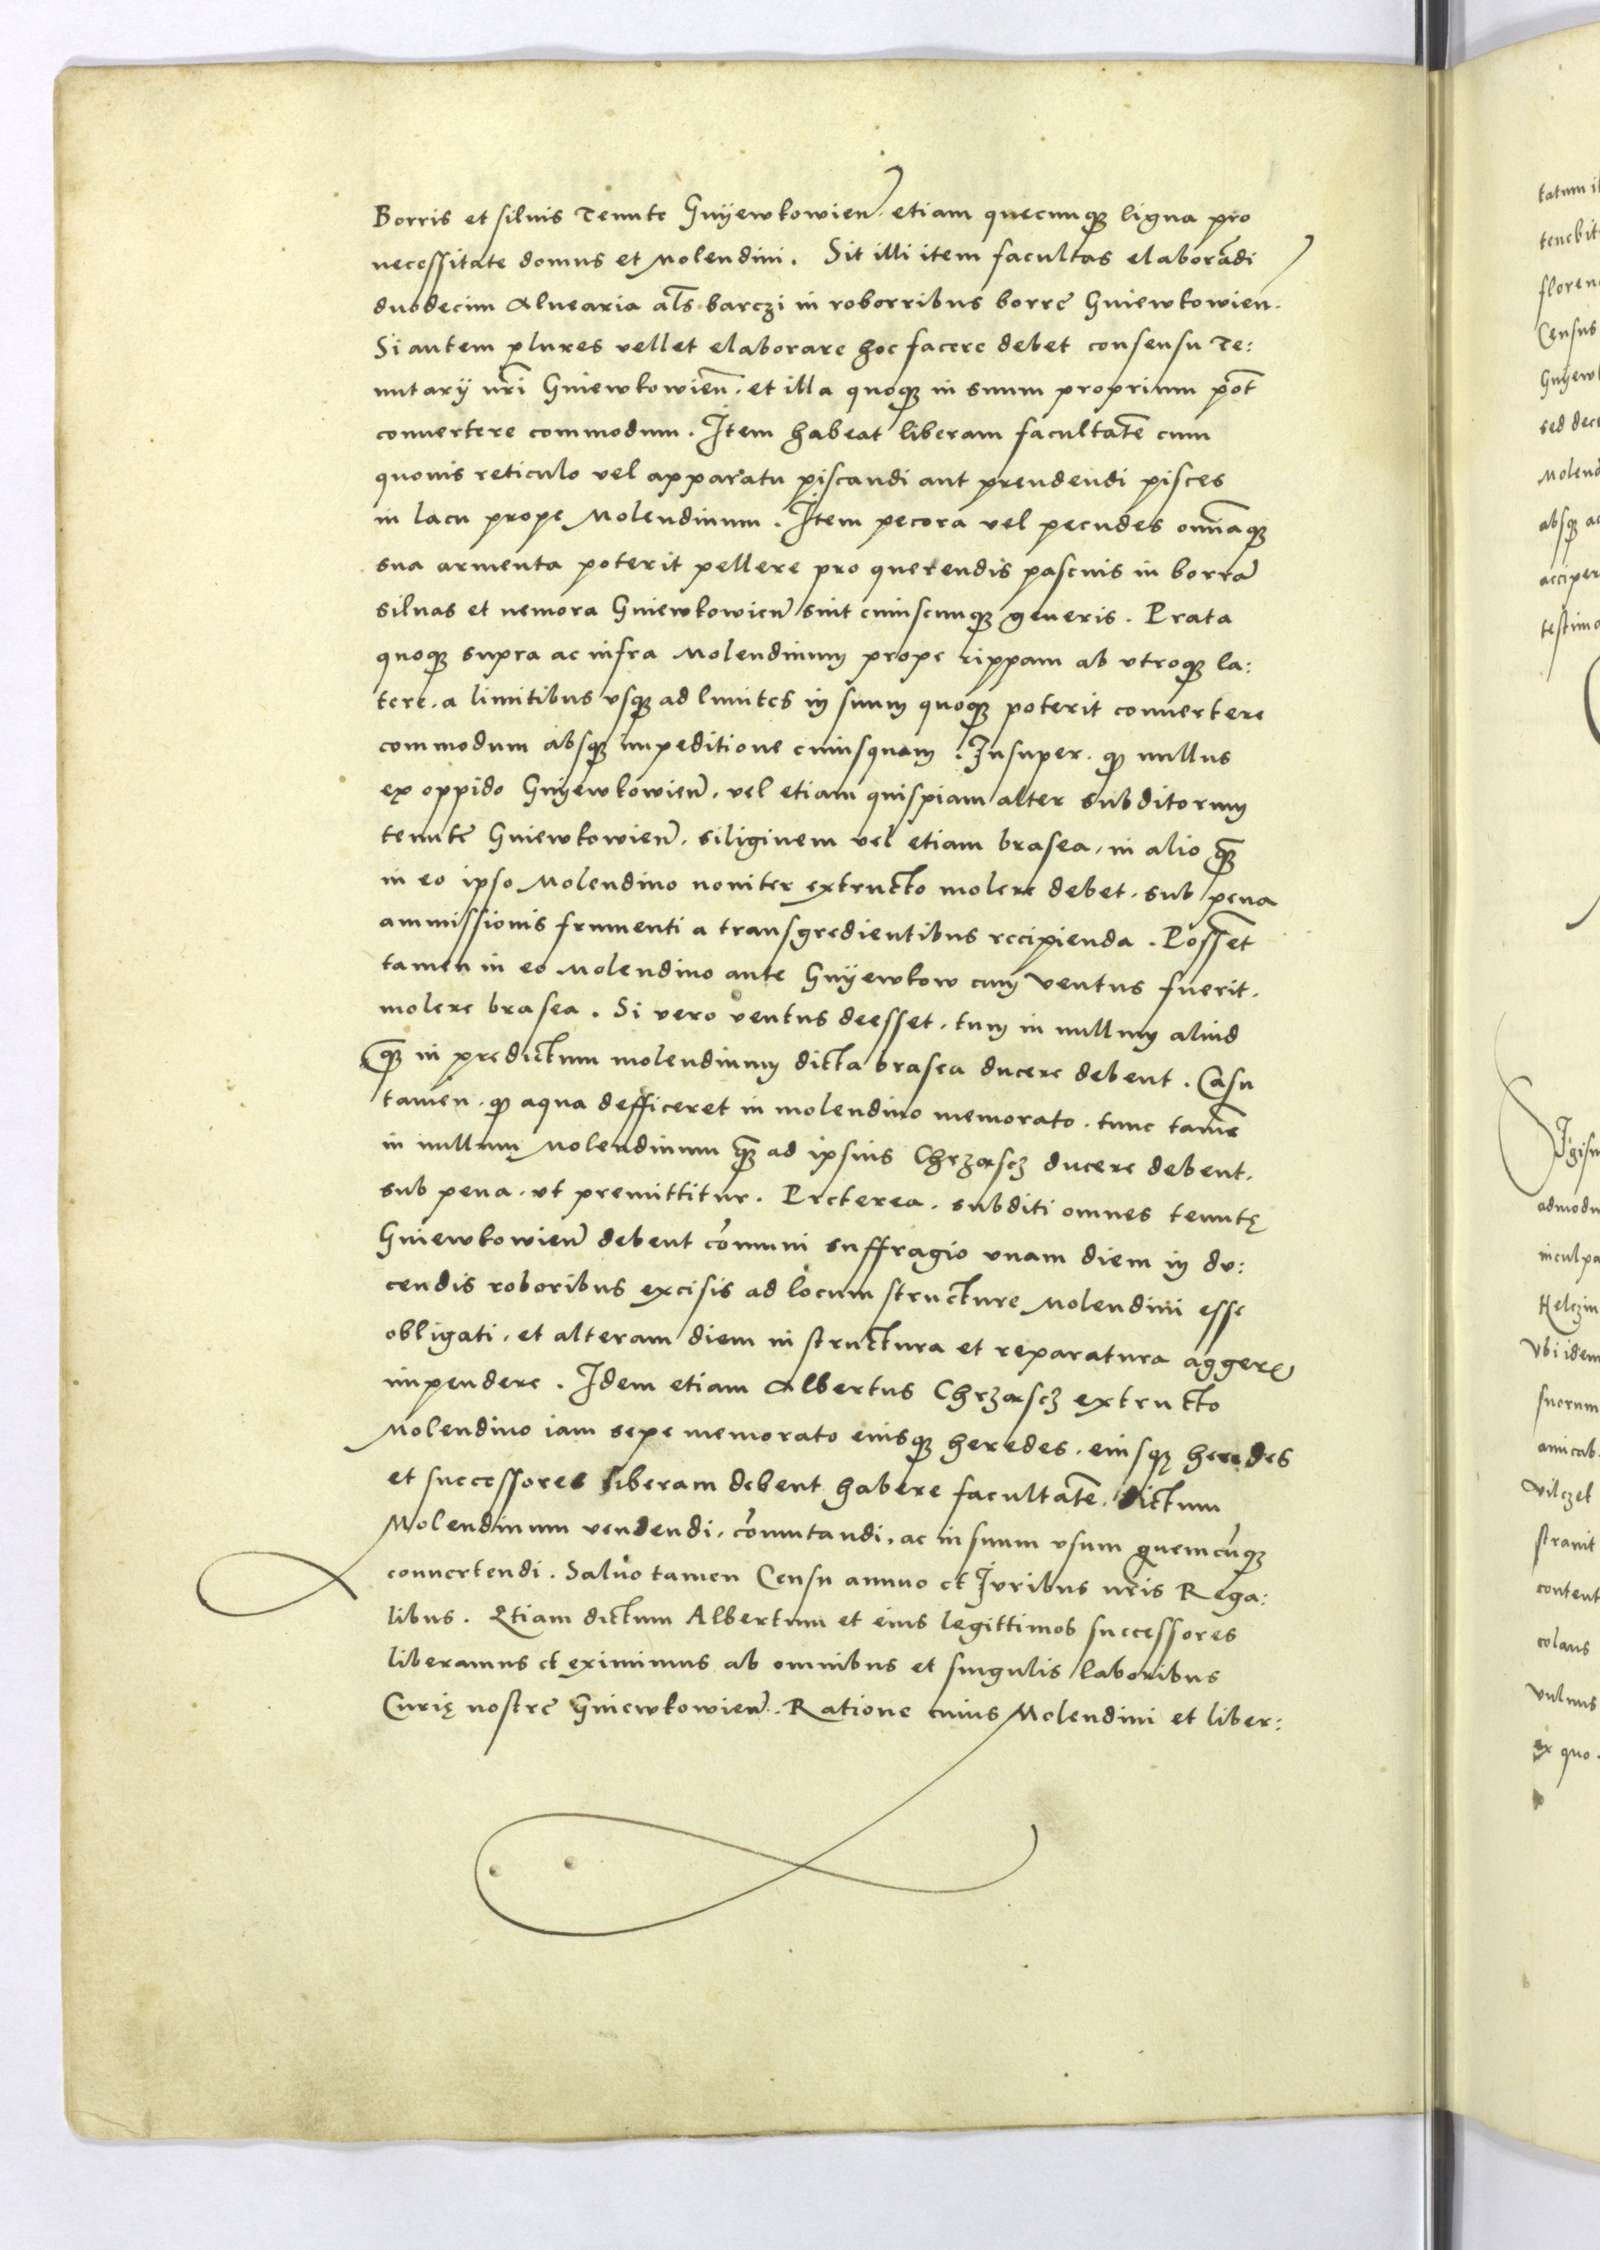 Borris et siluis Tenute Gnÿewkowien̄. etiam quecunqȝ ligna pro
necessitate domus et Molendini. Sit illi item facultas elaborādi
duodecim Aluearia al̄s barczi in roborribus borre Gniewkowien̄.
Si autem plures vellet elaborare hoc facere debet consensu Te:
nutarÿ nr̄i Gniewkowien̄. et illa quoqȝ in suum proprium pot̄
conuertere commodum. Item habeat liberam facultatē cum
quouis reticulo vel apparatu piscandi aut prendendi pisces
in lacu prope Molendinum. Item pecora vel pecudes omniaqȝ
sua armenta poterit pellere pro querendis pascuis in borrā
siluas et nemora Gniewkowien̄ sint cuiuscunqȝ generis. Prata
quoqȝ supra ac infra Molendinum prope rippam ab vtroqȝ la:
tere. a limitibus vsqȝ ad limites in suum quoqȝ poterit conuertere
commodum absqȝ impeditione cuiusquam. Insuper. qȝ nullus
ex oppido Gnÿewkowien̄. vel etiam quispiam alter subditorum
tenute Gniewkowien̄. siliginem vel etiam brasea. in alio qȝ̄
in eo ipso Molendino nouiter extructo molere debet. sub pena
ammissionis frumenti a transgredientibus recipienda. Possēt
tamen in eo Molendino ante Gnÿewkow cum ventus fuerit.
molere brasea. Si vero ventus deesset. tum in nullum aliud
qȝ̄ in predictum molendinum dicta brasea ducere debent. Casu
tamen. qȝ aqua defficeret in molendino memorato. tunc tamē
in nullum Molendinum qȝ̄ ad ipsius Chrzascz ducere debent.
sub pena. vt premittitur. Preterea. subditi omnes tenutę
Gniewkowien̄ debent cōmuni suffragio vnam diem in du:
cendis roboribus excisis ad locum structure Molendini esse
obligati. et alteram diem in structura et reparatura aggerę
impendere. Idem etiam Albertus Chrzascz extructo
Molendino iam sepe memorato eiusqȝ heredes. eiusqȝ heredes
et successores liberam debent habere facultatē. dictum
Molendinum vendendi. cōmutandi. ac in suum vsum quemcūqȝ
conuertendi. Saluo tamen Censu annuo et Iuribus nr̄is Rega:
libus. Etiam dictum Albertum et eius legittimos successores
liberamus et eximimus ab omnibus et singulis laboribus
Curię nostre Gniewkowien̄. Ratione cuius Molendini et liber:
tenebit
Census
sed
absqȝ
admodu
inculpa
Vbi idem
suorum
content
colaus
vulnus
ex quo.